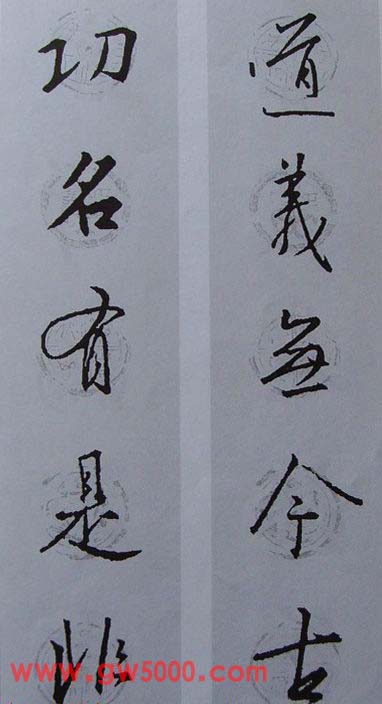 道義無今古
功名有是非
www.gw5000.com